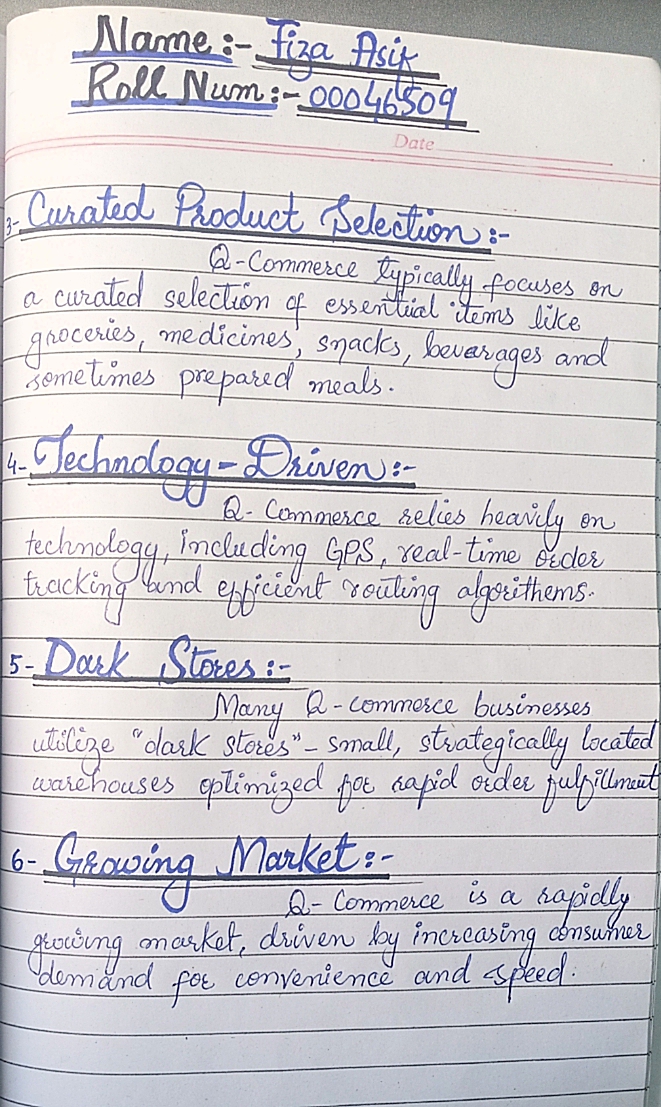 Name:- Fiza Asif
Roll Num:- 00046509
Date
3- Curated Product Selection:-
Q-Commerce typically focuses on
a curated selection of essential items like
groceries, medicines, snacks, beverages and
sometimes prepared meals.
4- Technology-Driven:-
Q-Commerce relies heavily on
technology, including GPS, real-time order
tracking and efficient routing algorithems.
5- Dark Stores:-
Many Q-commerce businesses
utilize "dark stores" - small, strategically located
warehouses optimized for rapid order fulfillment
6- Growing Market:-
Q-Commerce is a rapidly
growing market, driven by increasing consumer
demand for convenience and speed.